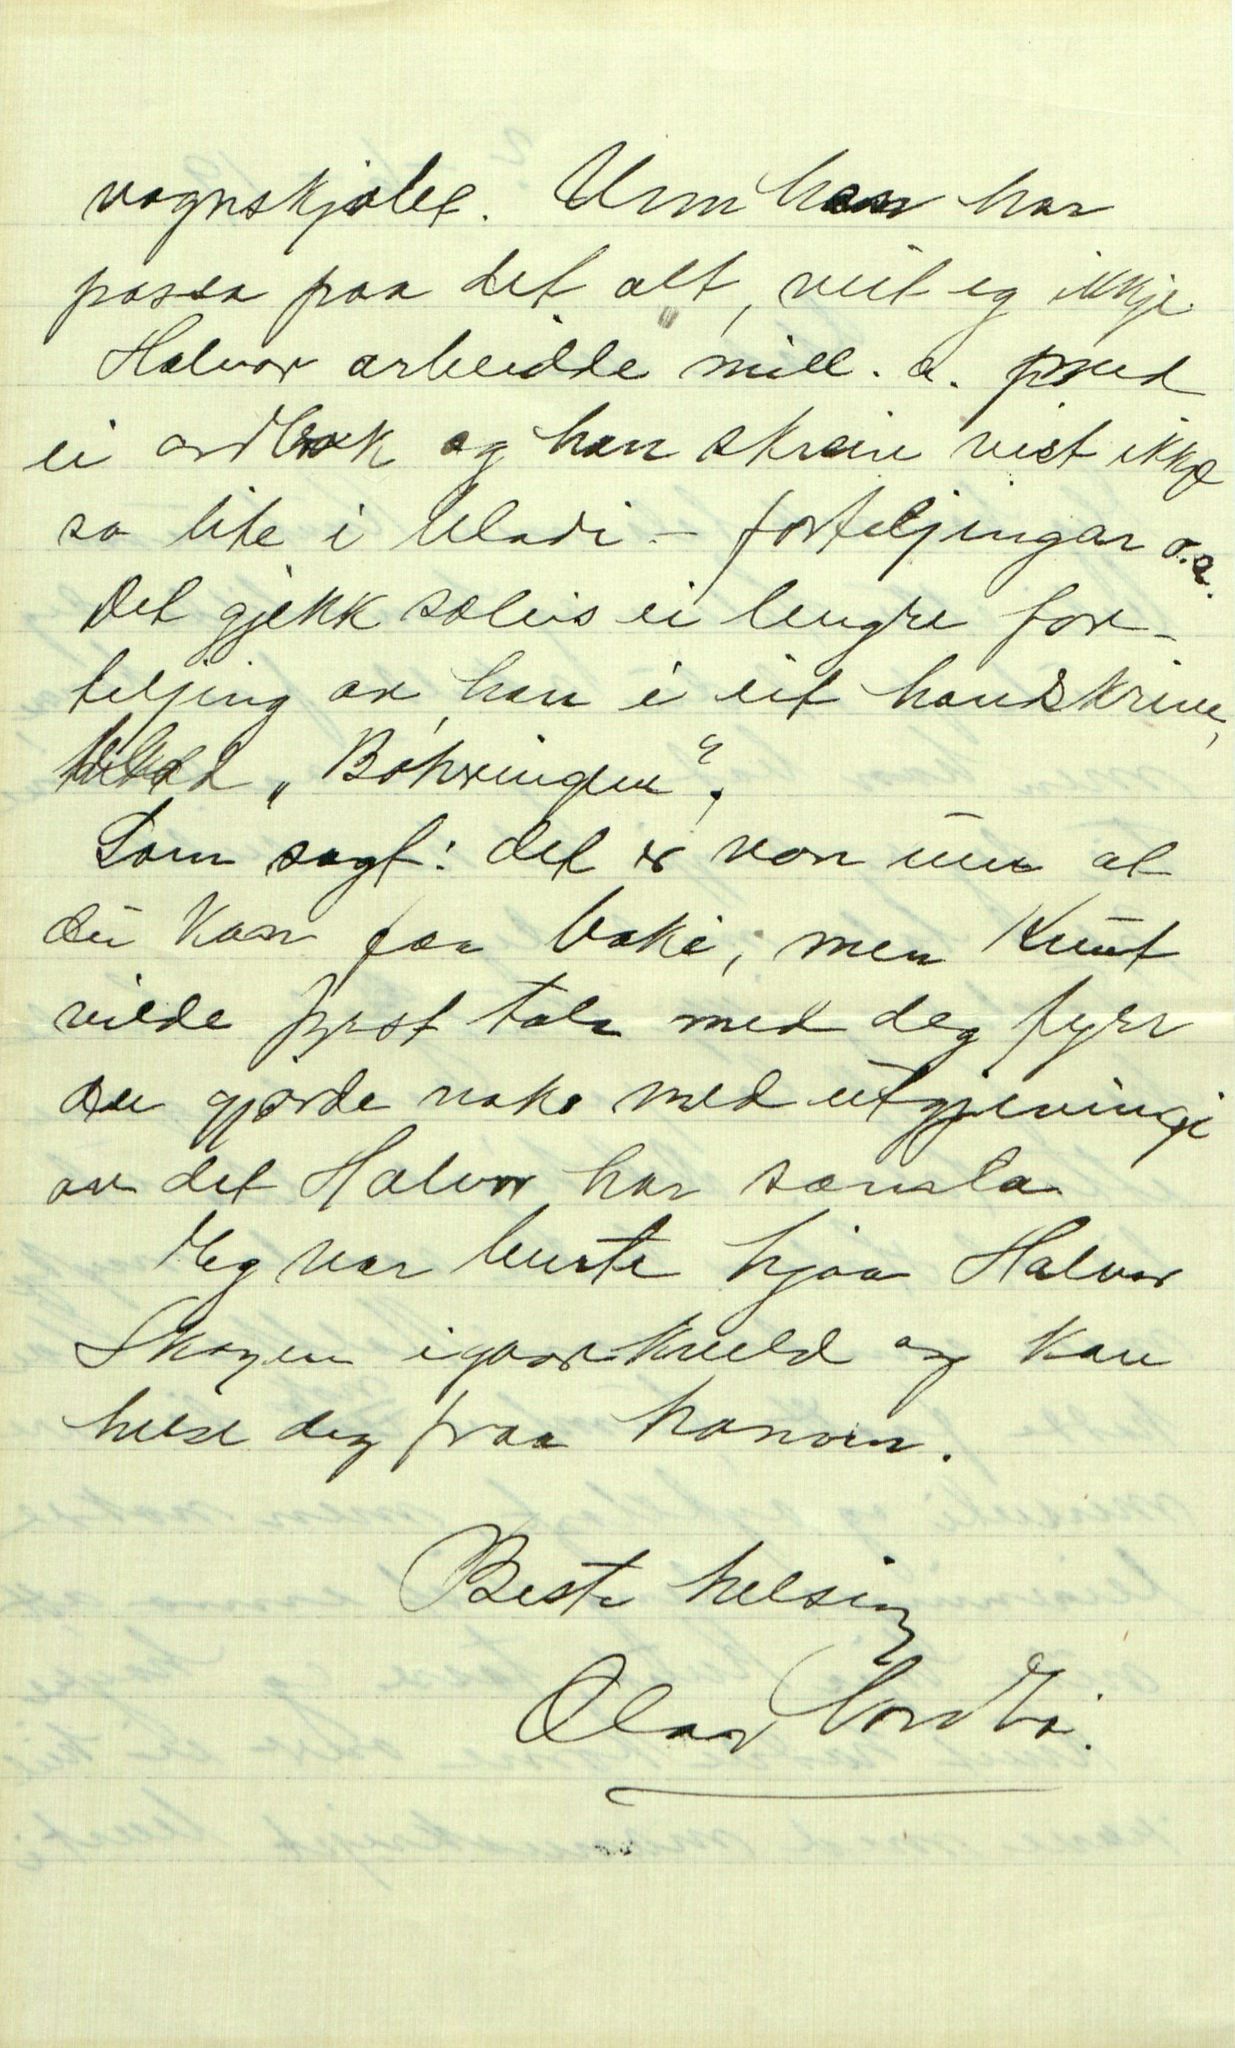 vognskjulet. Um han har
passa paa det alt, veit eg ikkje.
Halvor arbeidde mill. a. med
ei ordbok og han skreiv visst ikkje
so lite i bladi - forteljingar o.a.
Det gjekk soleis ei lengre for-
teljing av han i eit handskrive,
blad „Bøhringen“.
Som sagt: det er von um at
du kan faa boki; men Knut
vilde fyrst tala med deg fyrr
du gjorde noko med utgjevingi
av det Halvor har samla
Eg var burte hjaa Halvor
Skogen igaarkveld og kan
helse deg fraa honom.
Beste helsing
Olav Nordbø.